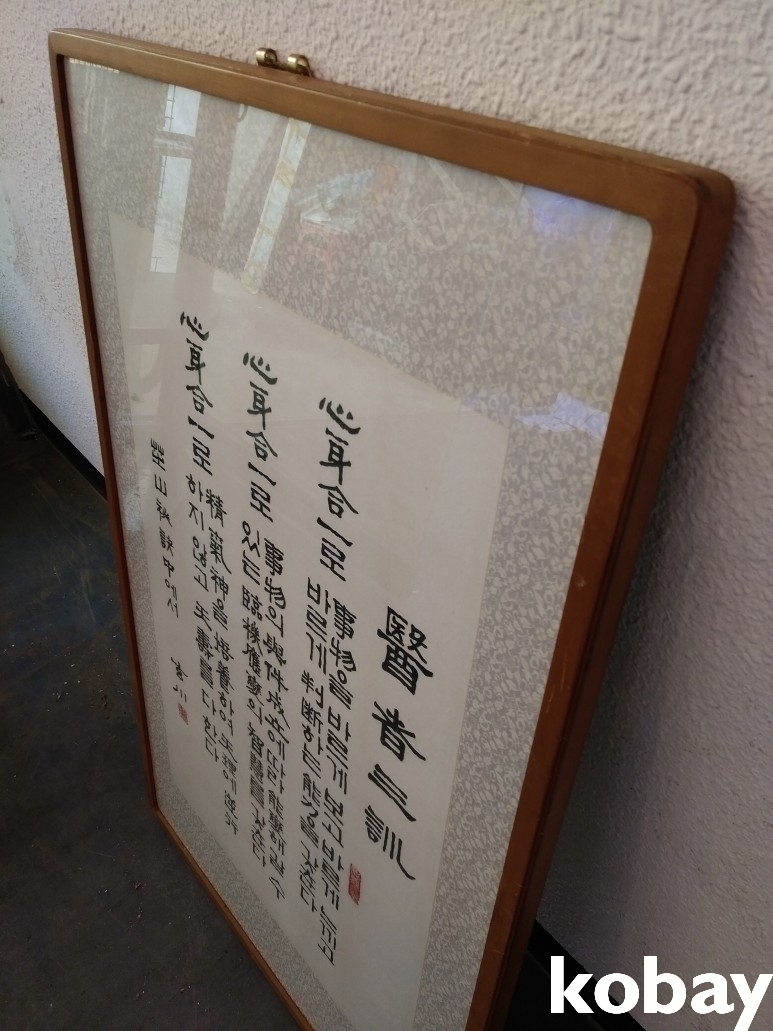 醫者三訓
心身合一로 事物을 바르게 보고 바르게 느끼고
바르게 判断하는 能力을 갖춘다
心身合一로 事物의 與件成立에 따라 能變해갈 수
있는 臨機應變의 智慧를 갖춘다
心身合一로 精氣神을 培養하여 天理에
하지 않고 天壽를 다 한다
山秘訣中에서
kobay